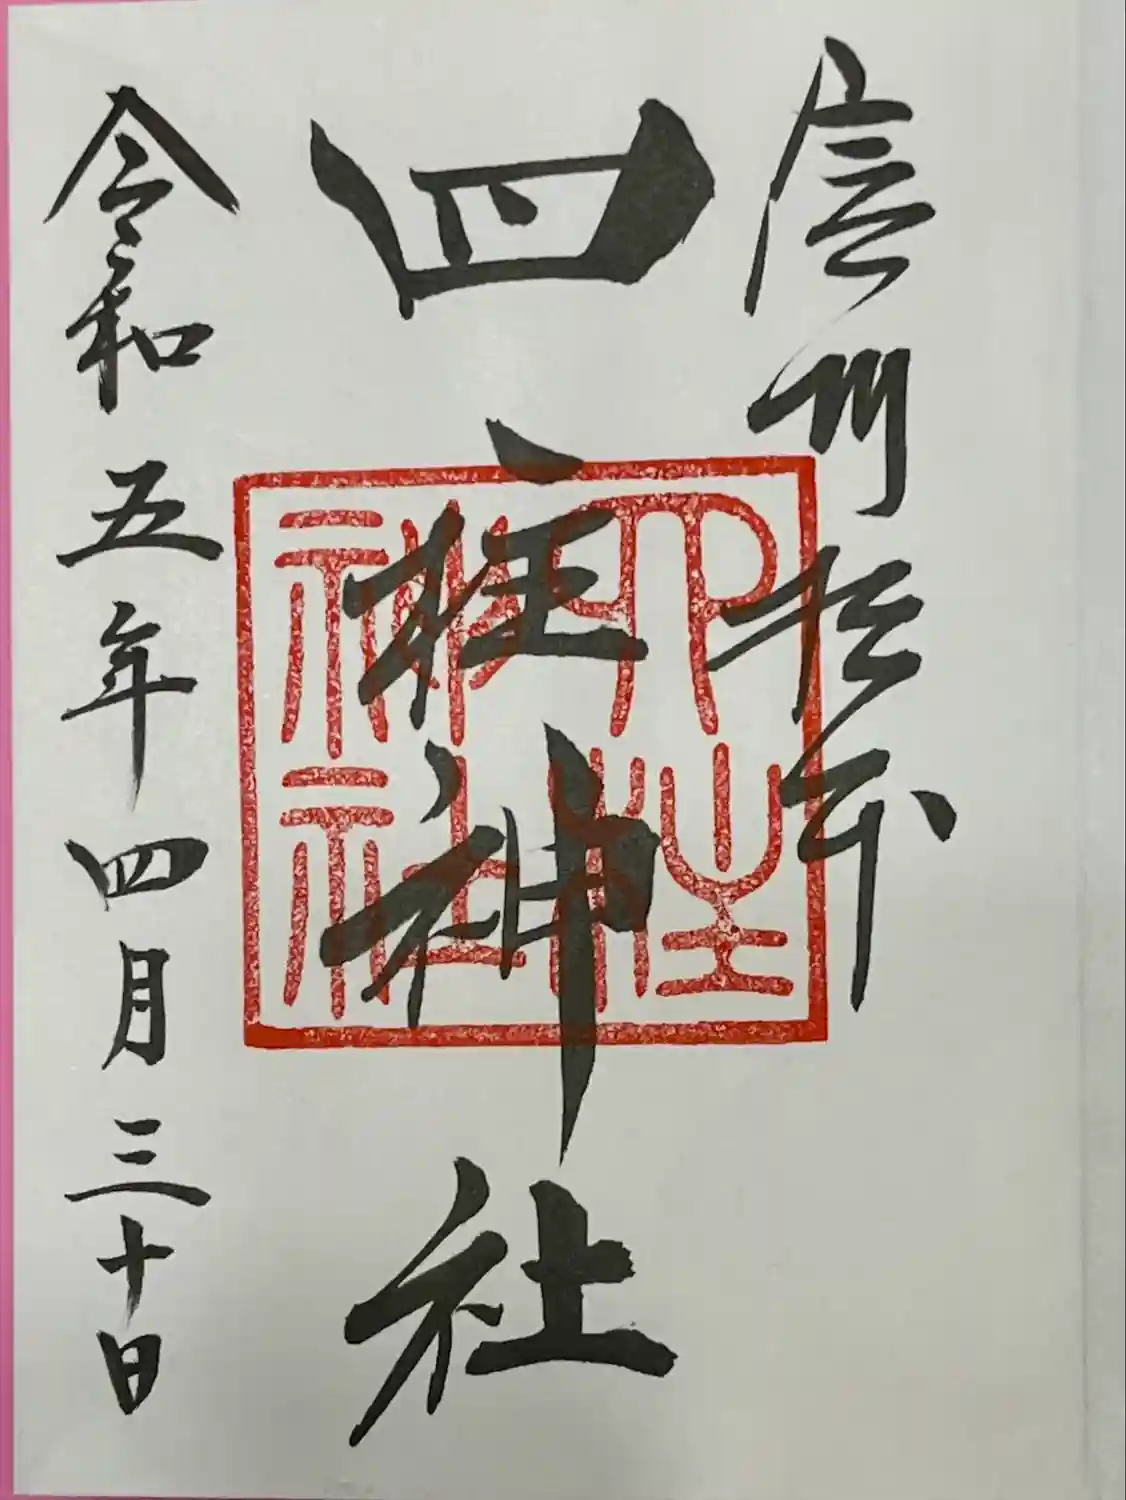 信州松本
四柱神社
四柱神社
令和五年四月三十日